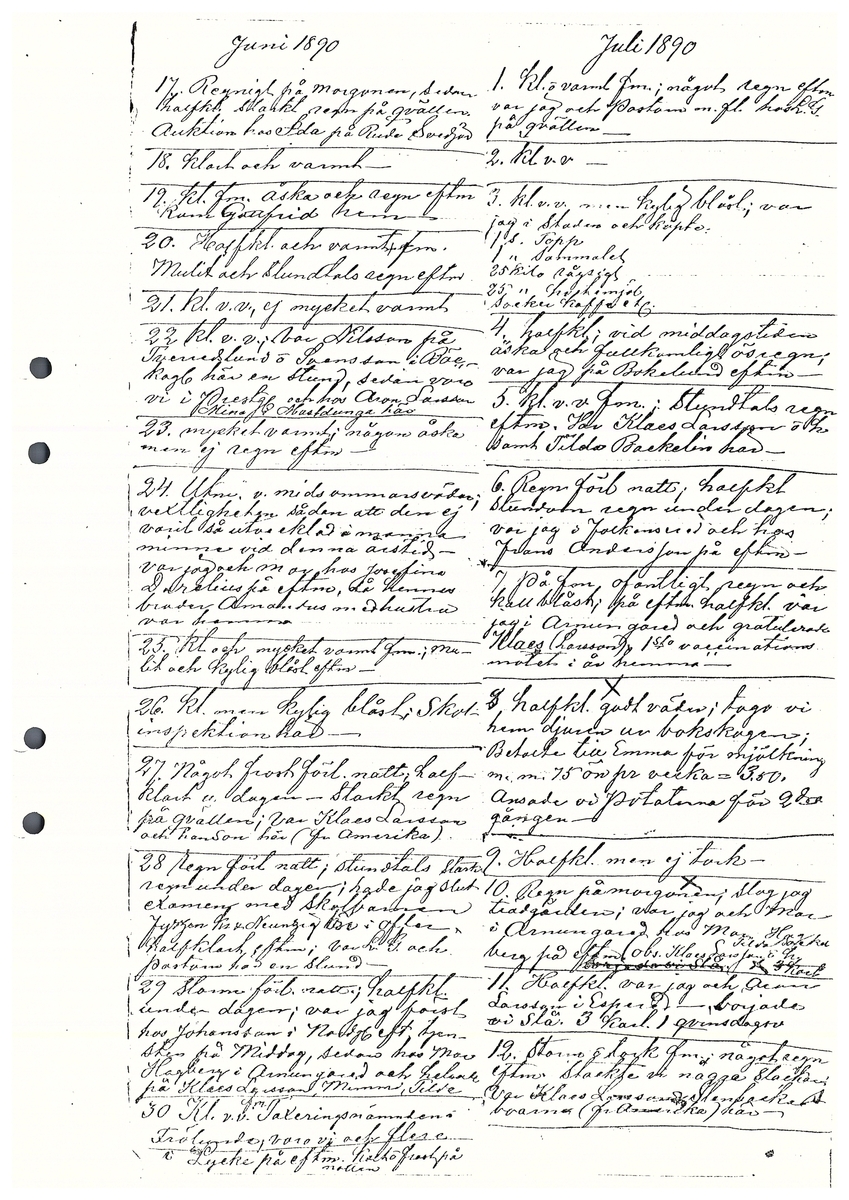 Juni 1890
17. Regnigt på morgonen, sedan
halfkl. starkt regn på qvällen.
Auktion hos Ida på Ruda
18. klart och varmt—
19. kl. fm. åska och regn eftm
Kom Gottfrid hem—
20. Halfkl. och varmt fm.
Mulit och stundtals regn eftm
21. Kl. v.v., ej mycket varmt
22 kl. v.v.; var Nilsson på
ö Svensson i
här en stund, sedan voro
vi i och hos Aron Larsson
här
23. mycket varmt; någon åska
men ej regn eftm—
24. Utm. v. midsommarsväder;
växtligheten sådan att den ej
varit så utvecklad i manna
minne vid denna årstid—
var jag och mor hos Josefina
på eftm, då hennes
broder Amandus med hustru
var hemma
25. Kl. och mycket varmt fm.; mu-
lit och kylig blåst eftm—
26. Kl. men kylig blåst; Skol-
inspektion här—
27. Något frost förl. natt; half-
klart u. dagen— Starkt regn
på qvällen; var Klaes Larsson
och här (fr Amerika).
28 regn förl natt; stundtals stark
regn under dagen; hade jag slut-
examen med skolbarnen
halfklart eftm; var och
Pastorn här en stund—
29 Storm förl. natt; halfkl.
under dagen; var jag först
hos Johansson i
på Middag, sedan hos Mor
Hagberg i Arnungared och
på Klaes Larsson, Mimmi, Tilda
30 Kl. v.v. fm Taxeringsnämnden i
Frölunda, voro vi och flere
i Lycke på eftm. frost på
natten
Juli 1890
1. kl. ö varmt fm.; något regn eftm
var jag och Pastorn m. fl. hos
på qvällen—
2. kl. v.v —
3. kl. v.v. men kylig blåst; var
jag i Staden och köpte:
1 s. Topp
1 " Sammalet
25 kilo rågsigt
25 "
Socker kaffe etc.
4. halfkl; vid middagstiden
åska och fullkomligt ösregn;
var jag på Bokelund eftm—
5. kl. v.v fm.; Stundtals regn
eftm. Var Klaes Larsson ö
samt Tilda Backelin här—
6. Regn förl natt; halfkl
stundom regn under dagen;
var jag i och hos
Frans Andersson på eftm—
7. På fm. ofantligt regn och
kall blåst; på eftm. halfkl. var
jag i Arnungared och gratulerade
Klaes (Larsson); 1sta vaccinations
mötet i år hemma—
8 halfkl. godt väder; togo vi
hem djuren ur bokskogen;
Betalte till Emma för mjölkning
m. m. 75 öre pr vecka = 3.50.
Ansade vi Potaterna för 2dra
gången—
9. Halfkl. men ej tork—
10. Regn på morgonen; slog jag
trädgården; var jag och Mor
i Arnungared hos Mor Hag-
berg på eftm (obs. Klaes Larsson,
Tilda
11. Halfkl. var jag och Aron
Larsson i Espered— började
vi Slå. 3 Karl. 1 qvinsdagsv
12. Storm ö tork fm.; något regn
eftm. Stackte vi några Stackar;
Var Klaes Larsson
(fr Amerika) här—